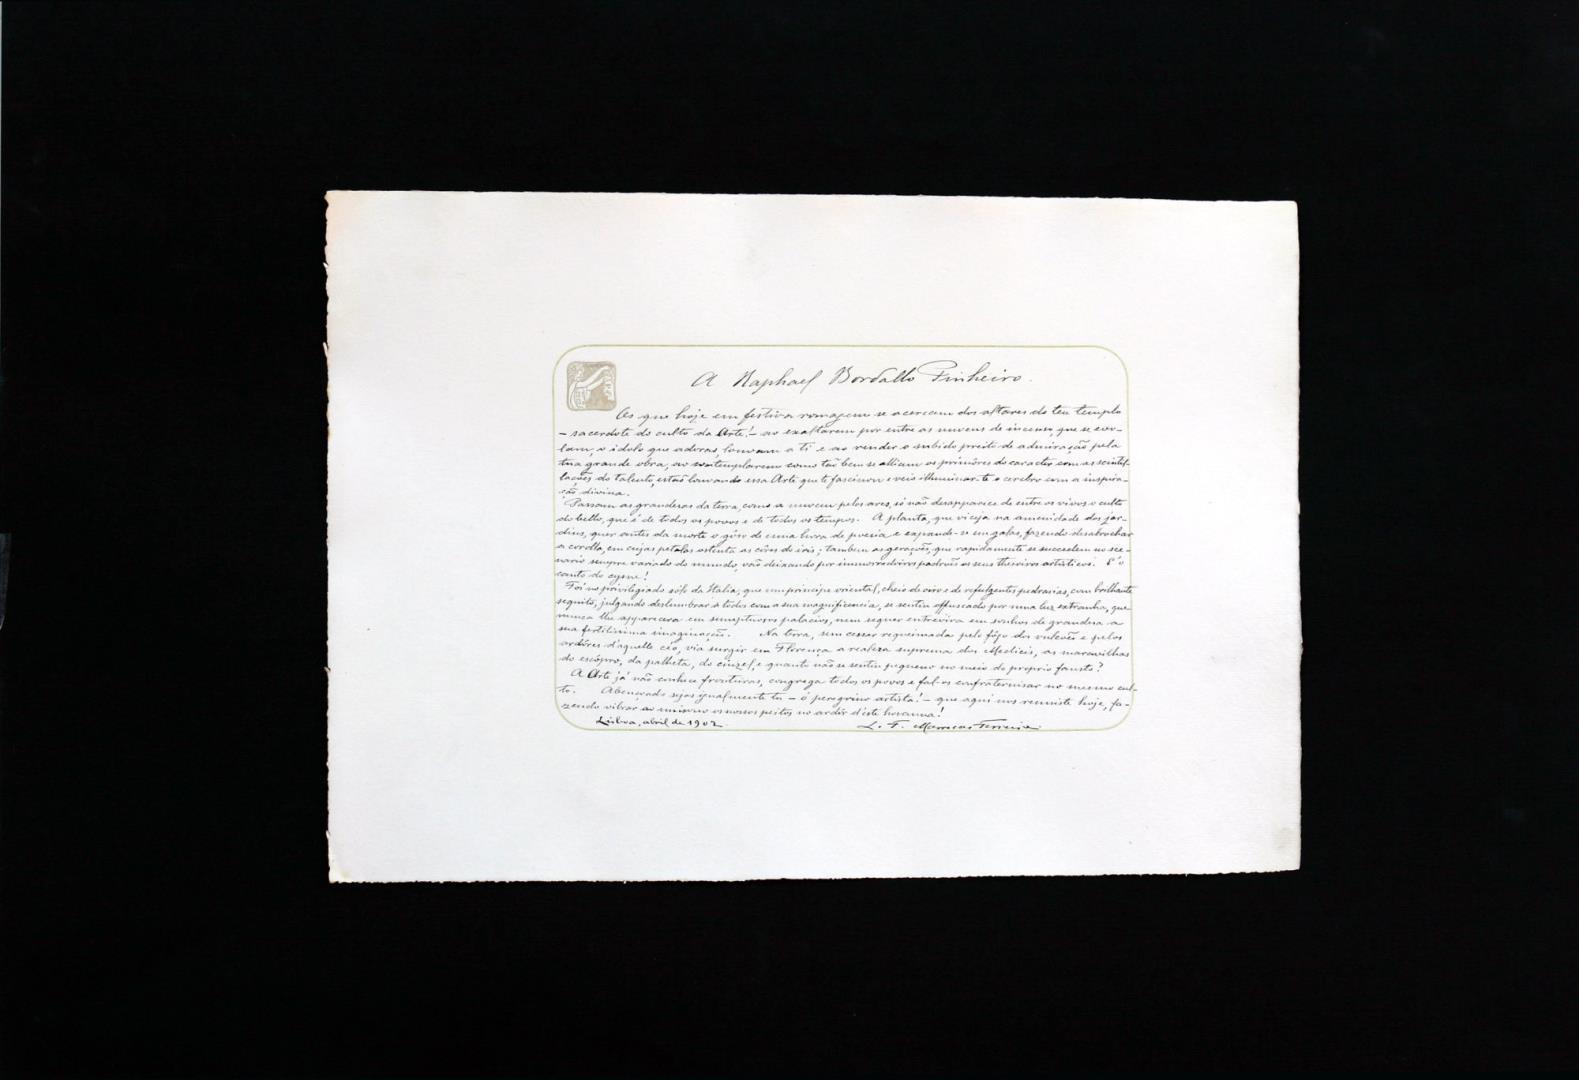 A Raphael Bordallo Pinheiro.
Os que hoje em festiva romagem se acercam dos altares do teu templo
– sacerdote do culto da Arte! – ao exaltarem por entre as nuvens de incenso, que se evo-
lam, o idolo que adoras, louvam a ti e ao render o subido preito de admiração pela
tua grande obra, ao contemplarem como tão bem se alliam os primôres do caracter com as scintil-
lações do talento, estão louvando essa Arte que te fascinou e veiu illuminar-te o cerebro com a inspira-
ção divina.
Passam as grandezas da terra, como a nuvem pelos ares, só não desapparece de entre os vivos o culto
do bello, que é de todos os povos e de todos os tempos. A planta, que viceja na amenidade dos jar-
dins, quer antes da morte o gôso de uma hora de poesia e expande-se em galas, fazendo desabrochar
a corolla, em cujas petalas ostenta as côres do iris; tambem as gerações, que rapidamente se succedem no sce-
nario sempre variado do mundo, vão deixando por immorredoiros padrões os seus thesoiros artisticos. É o
canto do cysne!
Foi no privilegiado sólo da Italia, que um principe oriental, cheio de oiro e de refulgentes pedrarias, com brilhante
sequito, julgando deslumbrar a todos com a sua magnificencia, se sentiu offuscado por uma luz extranha, que
nunca lhe apparecera em sumptuosos palacios, nem sequer entrevira em sonhos de grandesa a
sua fertilissima imaginação. Na terra, sem cessar requeimada pelo fôgo dos vulcões e pelos
ardôres d'aquelle céo, via surgir em Florença a realeza suprema dos Medicis, as maravilhas
do escôpro, da palheta, do cinzel, e quanto não se sentiu pequeno no meio do proprio fausto?
A Arte já não conhece fronteiras, congrega todos os povos e fal-os confraternisar no mesmo cul-
to. Abençoado sejas igualmente tu – ó peregrino artista! – que aqui nos reuniste hoje, fa-
zendo vibrar ao unisono os nossos peitos no ardôr d'este hosanna!
Lisboa, abril de 1902 L. F. Marrecas Ferreira